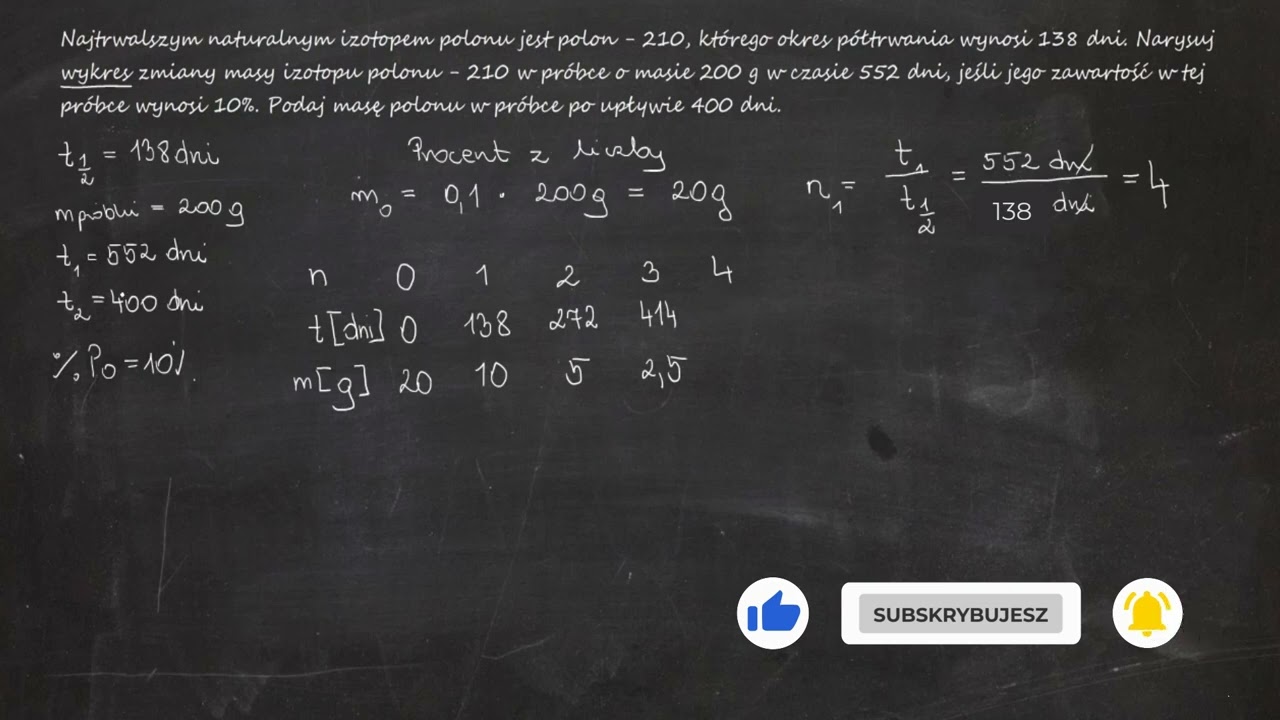 Najtrwalszym naturalnym izotopem polonu jest polon - 210, którego okres półtrwania wynosi 138 dni. Narysuj
wykres zmiany masy izotopu polonu - 210 w próbce o masie 200 g w czasie 552 dni, jeśli jego zawartość w tej
próbce wynosi 10%. Podaj masę polonu w próbce po upływie 400 dni.
t 1/2 = 138 dni
m próbki = 200 g
t₁ = 552 dni
t₂ = 400 dni
% Po = 10%
Procent z liczby
m₀ = 0,1 · 200g = 20g
n₁ = t₁ / t 1/2 = 552 dni / 138 dni = 4
n 0 1 2 3 4
t [dni] 0 138 272 414
m [g] 20 10 5 2,5
SUBSKRYBUJESZ